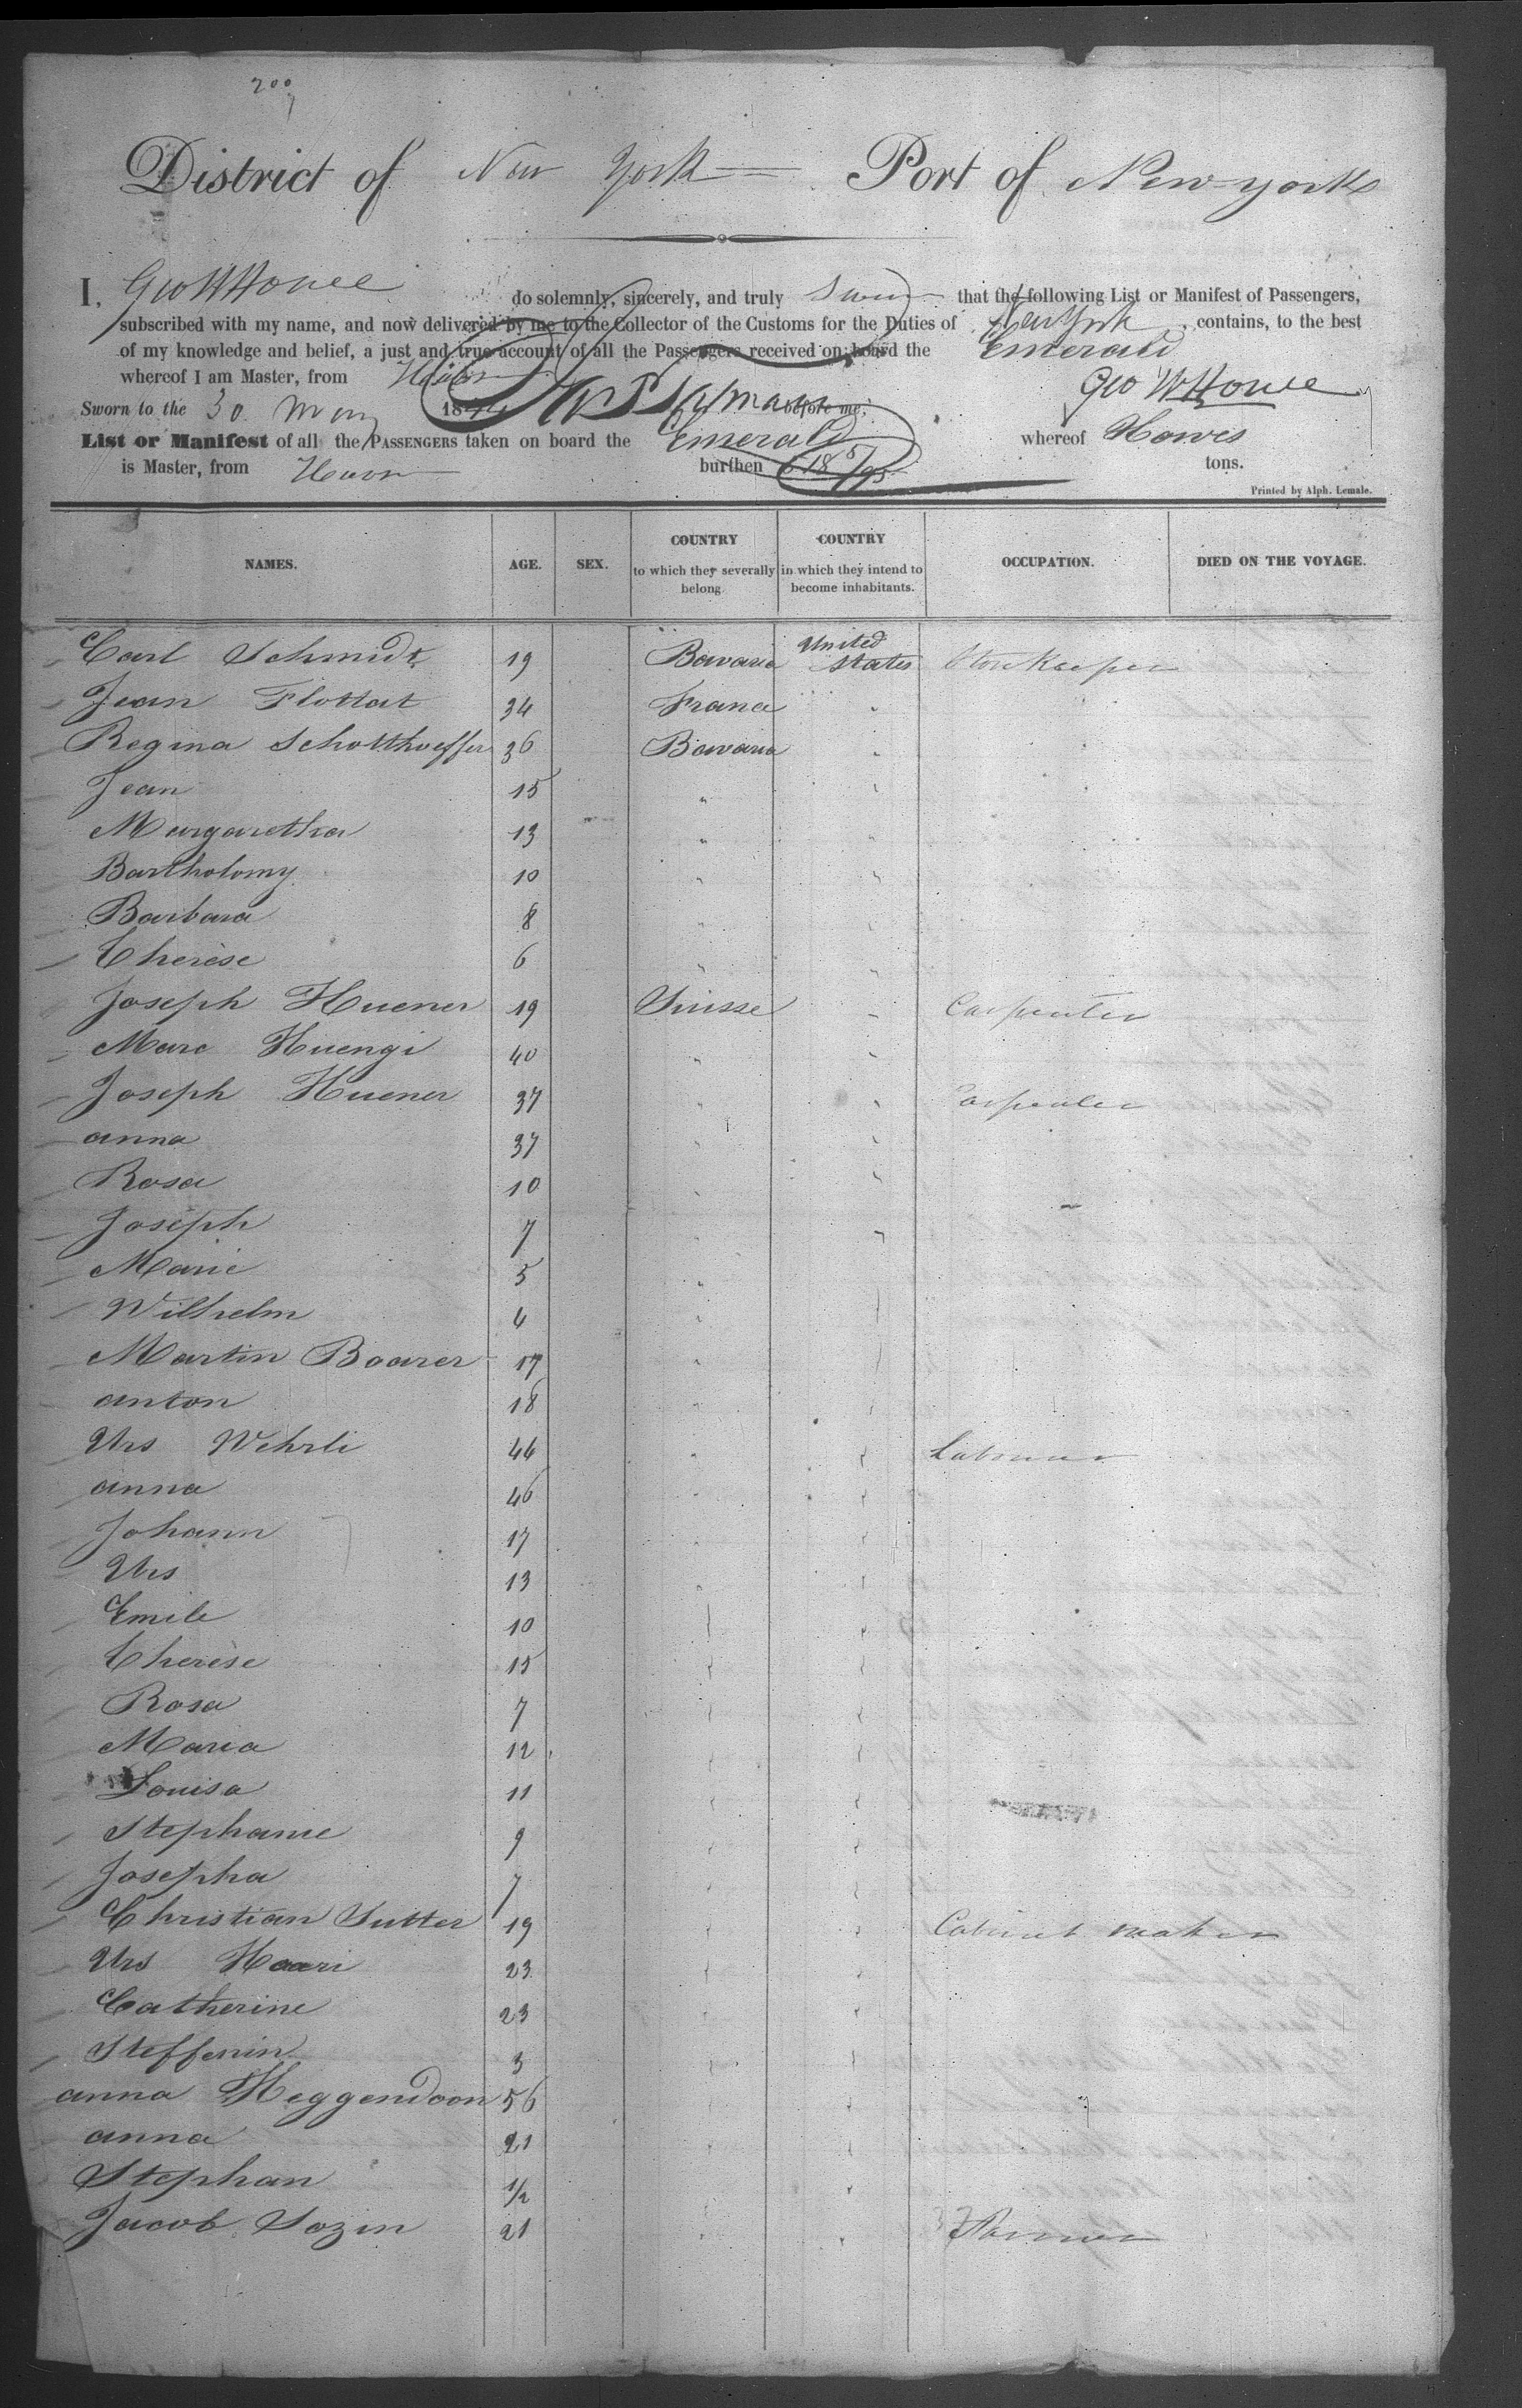 200
District of New York Port of New York
I, Geo W Howe do solemnly, sincerely, and truly swear that the following List or Manifest of Passengers,
subscribed with my name, and now delivered by me to the Collector of the Customs for the Duties of New York, contains, to the best
of my knowledge and belief, a just and true account of all the Passengers received on board the Emerald
whereof I am Master, from Havre
Geo W Howe
Sworn to the 30 May 184 before me,
List or Manifest of all the Passengers taken on board the Emerald whereof Howes
is Master, from Havre burthen 518 5/95 tons.
Printed by Alph. Lemale.
NAMES. AGE. SEX. COUNTRY to which they severally belong. COUNTRY in which they intend to become inhabitants. OCCUPATION. DIED ON THE VOYAGE.
Carl Schmidt 19 Bavaria United States Storekeeper
Jean Flottat 34 France "
Regina Schotthoeffer 36 Bavaria "
Jean 15 " "
Margaretha 13 " "
Bartholomy 10 " "
Barbara 8 " "
Therèse 6 " "
Joseph Huener 19 Suisse " Carpenter
Marc Huengi 40 " "
Joseph Huener 37 " " Carpenter
anna 37 " "
Rosa 10 " "
Joseph 7 " "
Marie 5 " "
Wilhelm 4 " "
Martin Boarer 17 " "
anton 18 " "
Urs Wehrli 44 " " Labourer
anna 46 " "
Johann 17 " "
Urs 13 " "
Emile 10 " "
Therèse 15 " "
Rosa 7 " "
Maria 12 " "
Louisa 11 " "
Stephanie 9 " "
Josepha 7 " "
Christian Sutter 19 " " Cabinet maker
Urs Haari 23 " "
Catherine 23 " "
Steffenin 3 " "
anna Heggendoon 56 " "
anna 21 " "
Stephan 1/2 " "
Jacob Sozin 21 " " Farmer